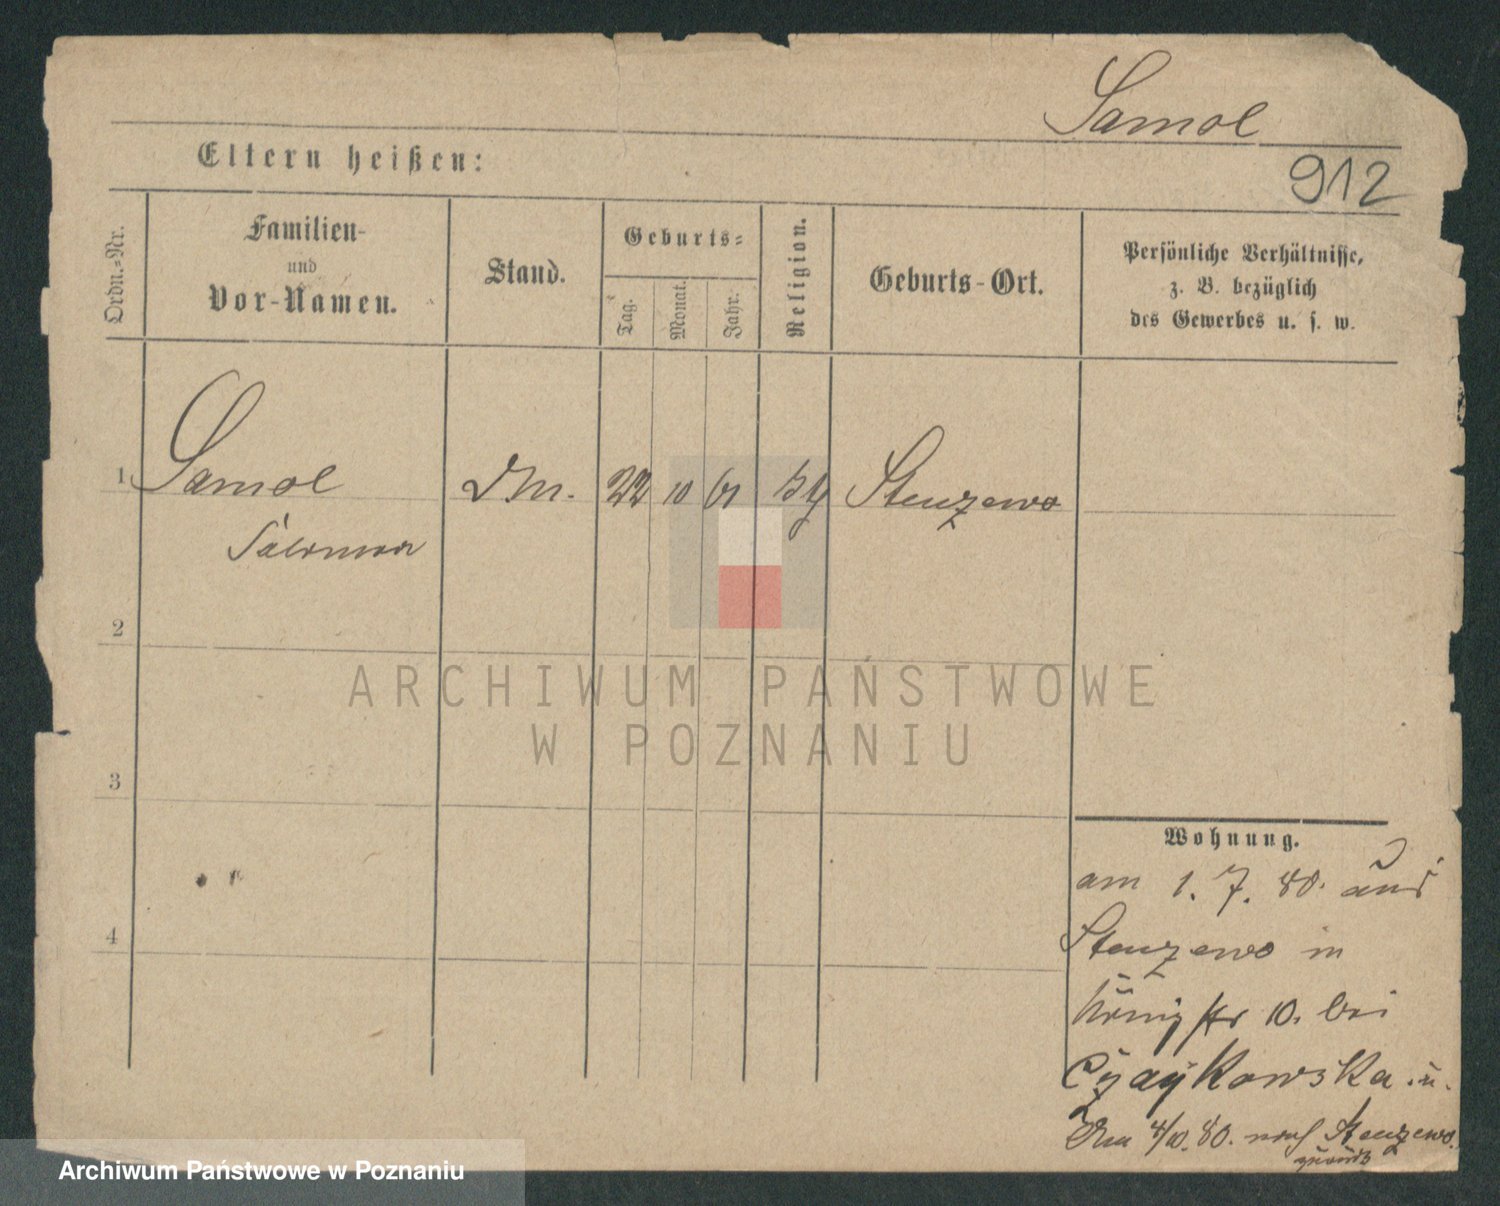 Samol
912
Eltern heißen:
Ordn.-Nr.
Familien-
und
Vor-Namen.
Stand.
Geburts-
Tag.
Monat.
Jahr.
Religion.
Geburts-Ort.
Persönliche Verhältnisse,
z. B. bezüglich
des Gewerbes u. s. w.
1 Samol 22 10 61 Stenzewo
2
3
4
ARCHIWUM PAŃSTWOWE
W POZNANIU
Wohnung.
am 1. 7. 80. aus
Stenzewo in
Königstr 10. bei
Czaykowska
4/10. 80. nach Stenzewo.
zurück
Archiwum Państwowe w Poznaniu